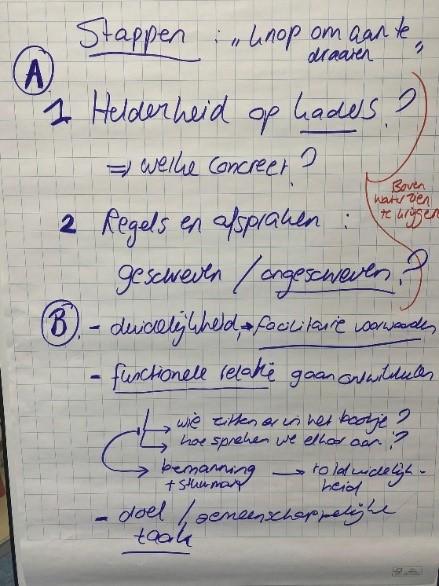 Stappen : "knop om aan te
draaien"
A
1 Helderheid op kaders ?
⇒ welke concreet ?
2 Regels en afspraken :
geschreven / ongeschreven ?
Boven
water zien
te krijgen
B - duidelijkheid → facilitaire voorwaarden
- functionele relatie gaan ontwikkelen
→ wie zitten er in het bootje ?
→ hoe spreken we elkaar aan ?
→ bemanning → rolduidelijk-
+ stuurman heid
- doel / gemeenschappelijke
taak